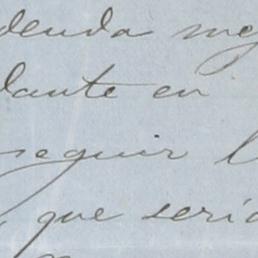 deuda me
dante en
seguir l
, que seri